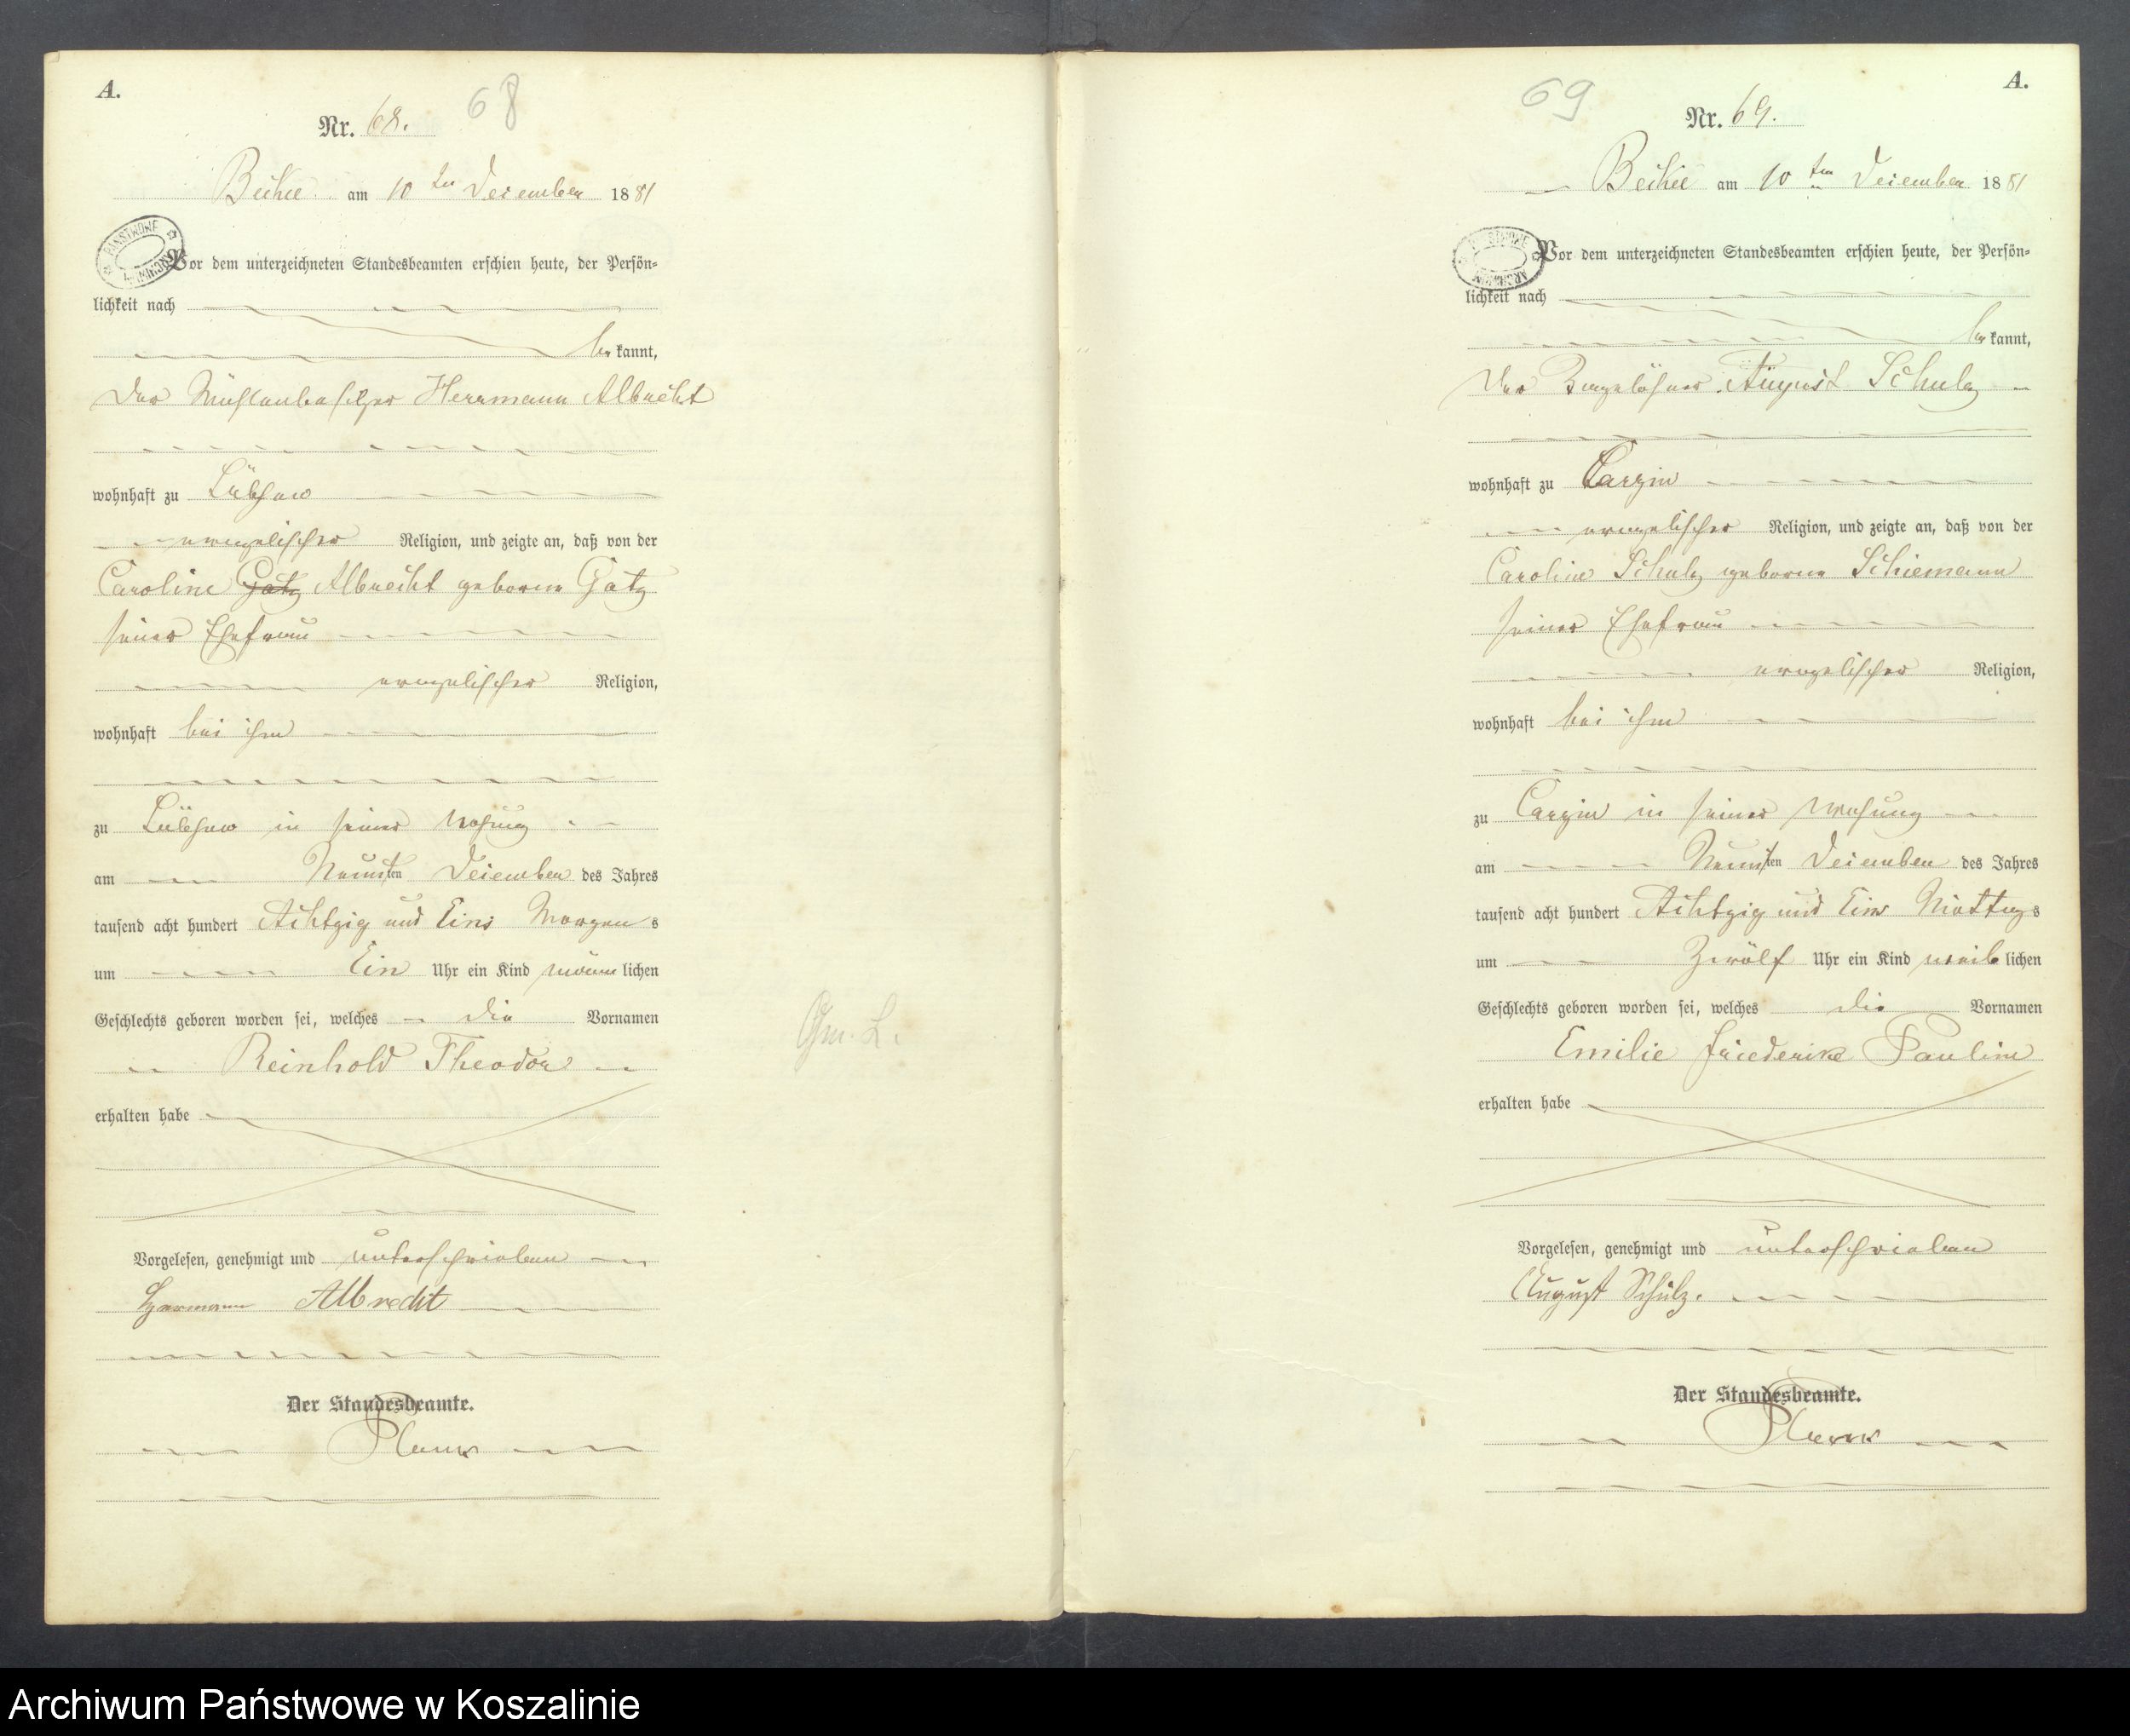 A.
Nr. 68.
68
Beckel am 10 ten December 1881
PAŃSTWOWE ARCHIWUM
Vor dem unterzeichneten Standesbeamten erschien heute, der Persön=
lichkeit nach
be kannt,
der Mühlenbesitzer Herrmann Albrecht
wohnhaft zu Lübsow
evangelischer Religion, und zeigte an, daß von der
Caroline Gatz Albrecht geborene Gatz
seiner Ehefrau
evangelischer Religion,
wohnhaft bei ihm
zu Lübsow in seiner Wohnung
am Neunten December des Jahres
tausend acht hundert Achtzig und Eins Morgens
um Ein Uhr ein Kind männlichen
Geschlechts geboren worden sei, welches die Vornamen
Reinhold Theodor
erhalten habe
Vorgelesen, genehmigt und unterschrieben
Herrmann Albrecht
Der Standesbeamte.
A.
69
Nr. 69.
am 10 ten December 1881
PAŃSTWOWE ARCHIWUM
Vor dem unterzeichneten Standesbeamten erschien heute, der Persön=
lichkeit nach
be kannt,
Der August Schulz
wohnhaft zu Carzin
evangelischer Religion, und zeigte an, daß von der
Caroline Schulz geborene Schiemann
seiner Ehefrau
evangelischer Religion,
wohnhaft bei ihm
zu Carzin in seiner Wohnung
am Neunten December des Jahres
tausend acht hundert Achtzig und Eins Mittags
um Zwölf Uhr ein Kind weiblichen
Geschlechts geboren worden sei, welches die Vornamen
Emilie Friederike Pauline
erhalten habe
Vorgelesen, genehmigt und unterschrieben
August Schulz.
Der Standesbeamte.
Archiwum Państwowe w Koszalinie